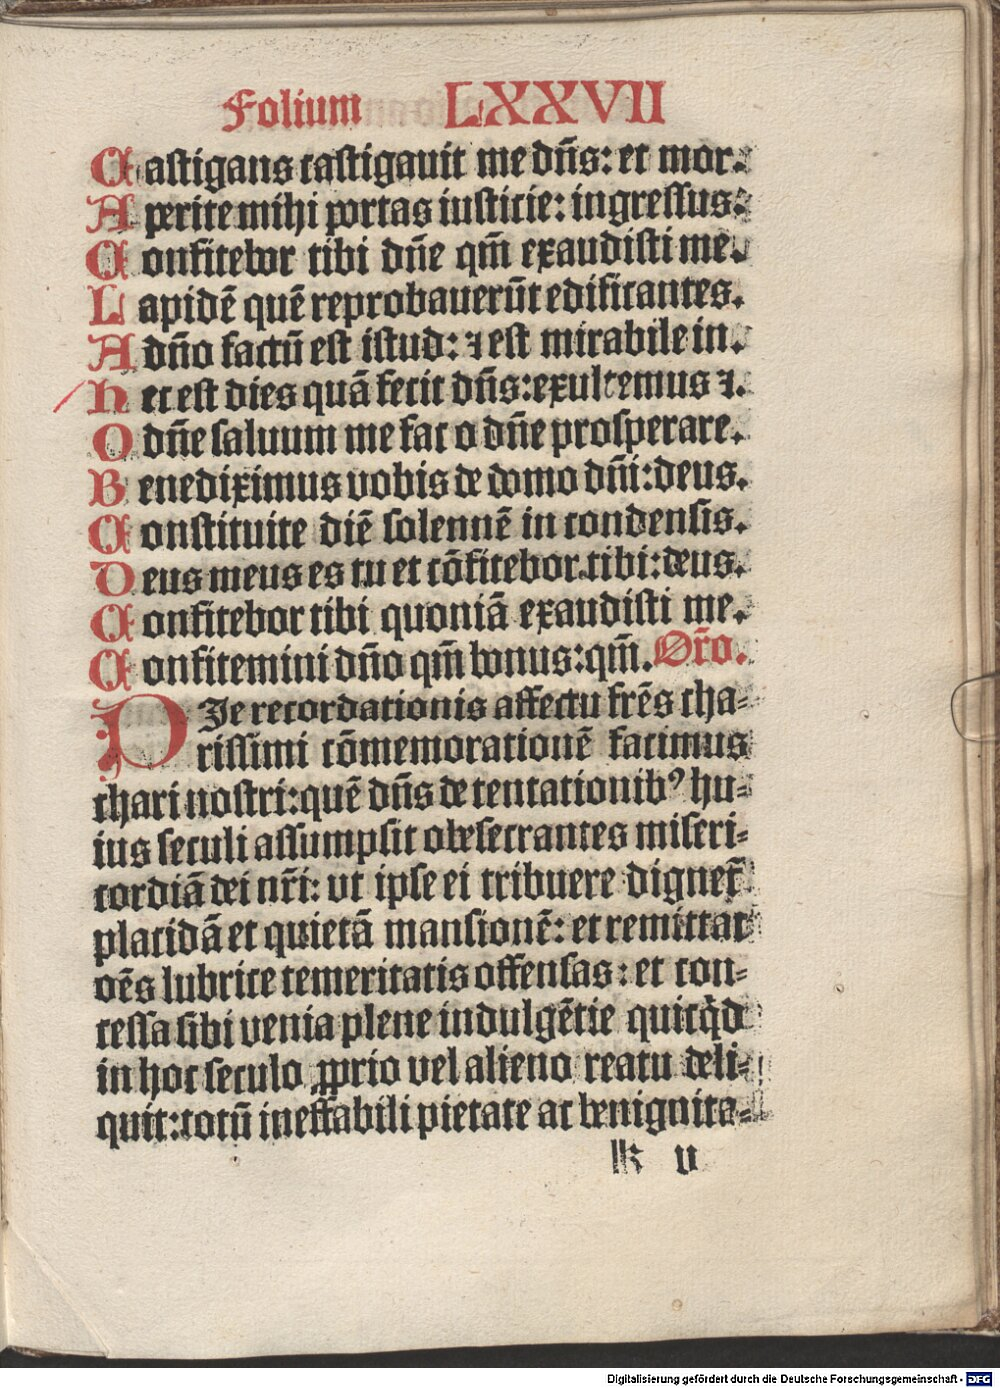 Folium LXXVII
Castigans castigauit me dñs: et mor.
Aperite mihi portas iusticie: ingressus.
Confitebor tibi dñe qm̃ exaudisti me.
Lapidẽ quẽ reprobauerũt edificantes.
A dño factũ est istud: ⁊ est mirabile in.
Hec est dies quã fecit dñs: exultemus ⁊.
O dñe saluum me fac o dñe prosperare.
Benediximus vobis de domo dñi: deus.
Constituite diẽ solennẽ in condensis.
Deus meus es tu et cõfitebor tibi: deus.
Confitebor tibi quoniã exaudisti me.
Confitemini dño qm̃ bonus: qm̃. Or̃o.
PIe recordationis affectu frẽs cha=
rissimi cõmemorationẽ facimus
chari nostri: quẽ dñs de tentationibꝰ hu=
ius seculi assumpsit obsecrantes miseri=
cordiã dei nr̃i: vt ipse ei tribuere dignet̃
placidã et quietã mansionẽ: et remittat
oẽs lubrice temeritatis offensas: et con=
cessa sibi venia plene indulgẽtie quicq̇d
in hoc seculo ꝓprio vel alieno reatu deli=
quit: totũ ineffabili pietate ac benignita=
k v
Digitalisierung gefördert durch die Deutsche Forschungsgemeinschaft - DFG